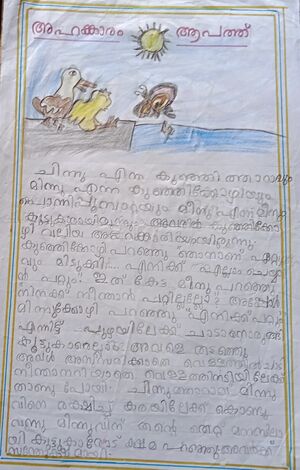 അഹങ്കാരം ആപത്ത്
ചിന്നു എന്ന കുഞ്ഞിത്താറാവും
മിന്നു എന്ന കുഞ്ഞിക്കോഴിയും
പൊന്നിപ്പൂമ്പാറ്റയും മീനു എന്ന മീനും
കൂട്ടുകാരായിരുന്നു. അവരിൽ കുഞ്ഞിക്കോ
ഴി വലിയ അഹങ്കാരിയായിരുന്നു
കുഞ്ഞിക്കോഴി പറഞ്ഞു ഞാനാണ് ഏറ്റ
വും മിടുക്കി.... എനിക്ക് എല്ലാം ചെയ്യാ
ൻ പറ്റും. ഇത് കേട്ട മീനു പറഞ്ഞു
നിനക്ക് നീന്താൻ പറ്റില്ലല്ലോ?
മിന്നുക്കോഴി പറഞ്ഞു എനിക്ക് പറ്റും
എന്നിട്ട് പുഴയിലേക്ക് ചാടാനൊരുങ്ങി
കൂട്ടുകാരെല്ലാം അവളെ തടഞ്ഞു
അവൾ അനുസരിക്കാതെ വെള്ളത്തിൽ ചാടി
നീന്താനറിയാതെ വെള്ളത്തിനടിയിലേക്ക്
താണു പോയി. ചിന്നുത്താറാവ് മിന്നു
വിനെ രക്ഷിച്ച് കരയിലേക്ക് കൊണ്ടു
വന്നു മിന്നുവിന് തന്റെ തെറ്റ് മനസ്സിലാ
യി കൂട്ടുകാരോട് ക്ഷമ പറഞ്ഞു അവർക്ക്